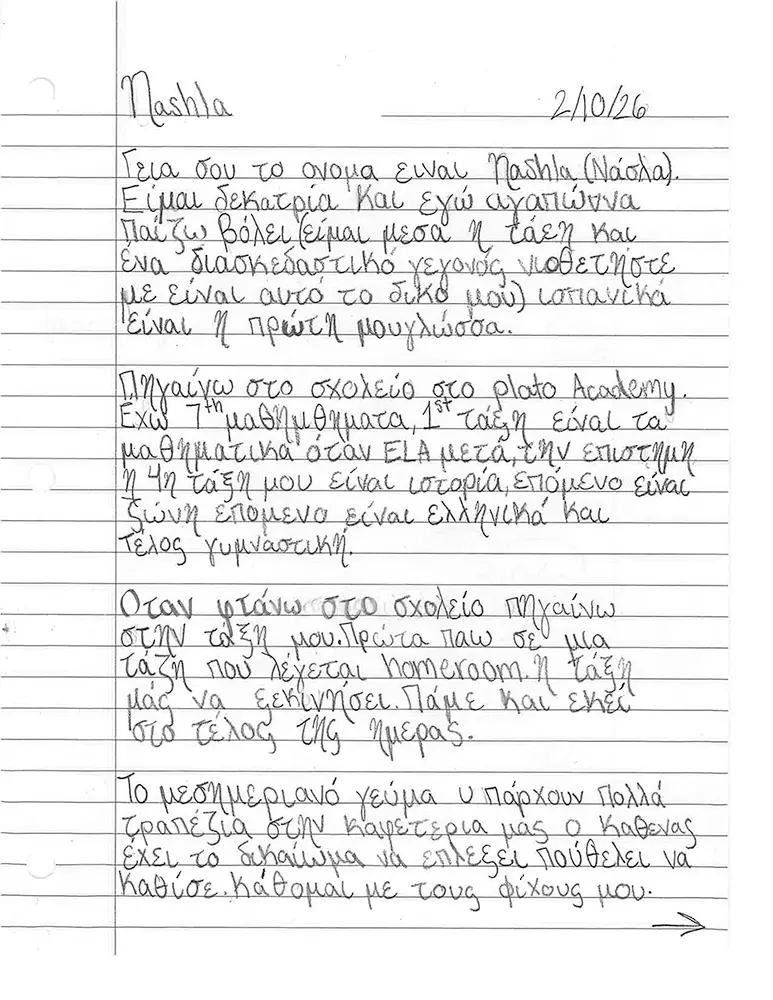 Nashla 2/10/26
Γεια σου το ονομα ειναι Nashla (Νάσλα).
Είμαι δεκατρία και εγώ αγαπώννα
παίζω βόλει (είμαι μεσα η τάξη και
ένα διασκεδαστικό γεγονός υιοθετήστε
με είναι αυτό το δικο μου) ισπανικά
είναι η πρώτη μουγλώσσα.
Πηγαίνω στο σχολείο στο plato Academy.
Έχω 7th μαθημθηματα, 1st τάξη είναι τα
μαθηματικα όταν ELA μετά, την επιστημη
η 4η τάξη μου είναι ιστορία, επόμενο είναι
ζώνη επομενο είναι ελληνικά και
τέλος γυμναστική.
Οταν φτάνω στο σχολείο πηγαίνω
στην τάξη μου. Πρώτα παω σε μια
τάξη που λέγεται homeroom. η τάξη
μάς να ξεκινήσει. Πάμε και εκεί
στο τέλος της ημερας.
Το μεσημεριανό γεύμα υπάρχουν πολλά
τραπέζια στην καφετερια μας ο καθενας
έχει το δικαίωμα να επλεξει πούθελει να
καθίσε. Κάθομαι με τους φίχους μου.
→